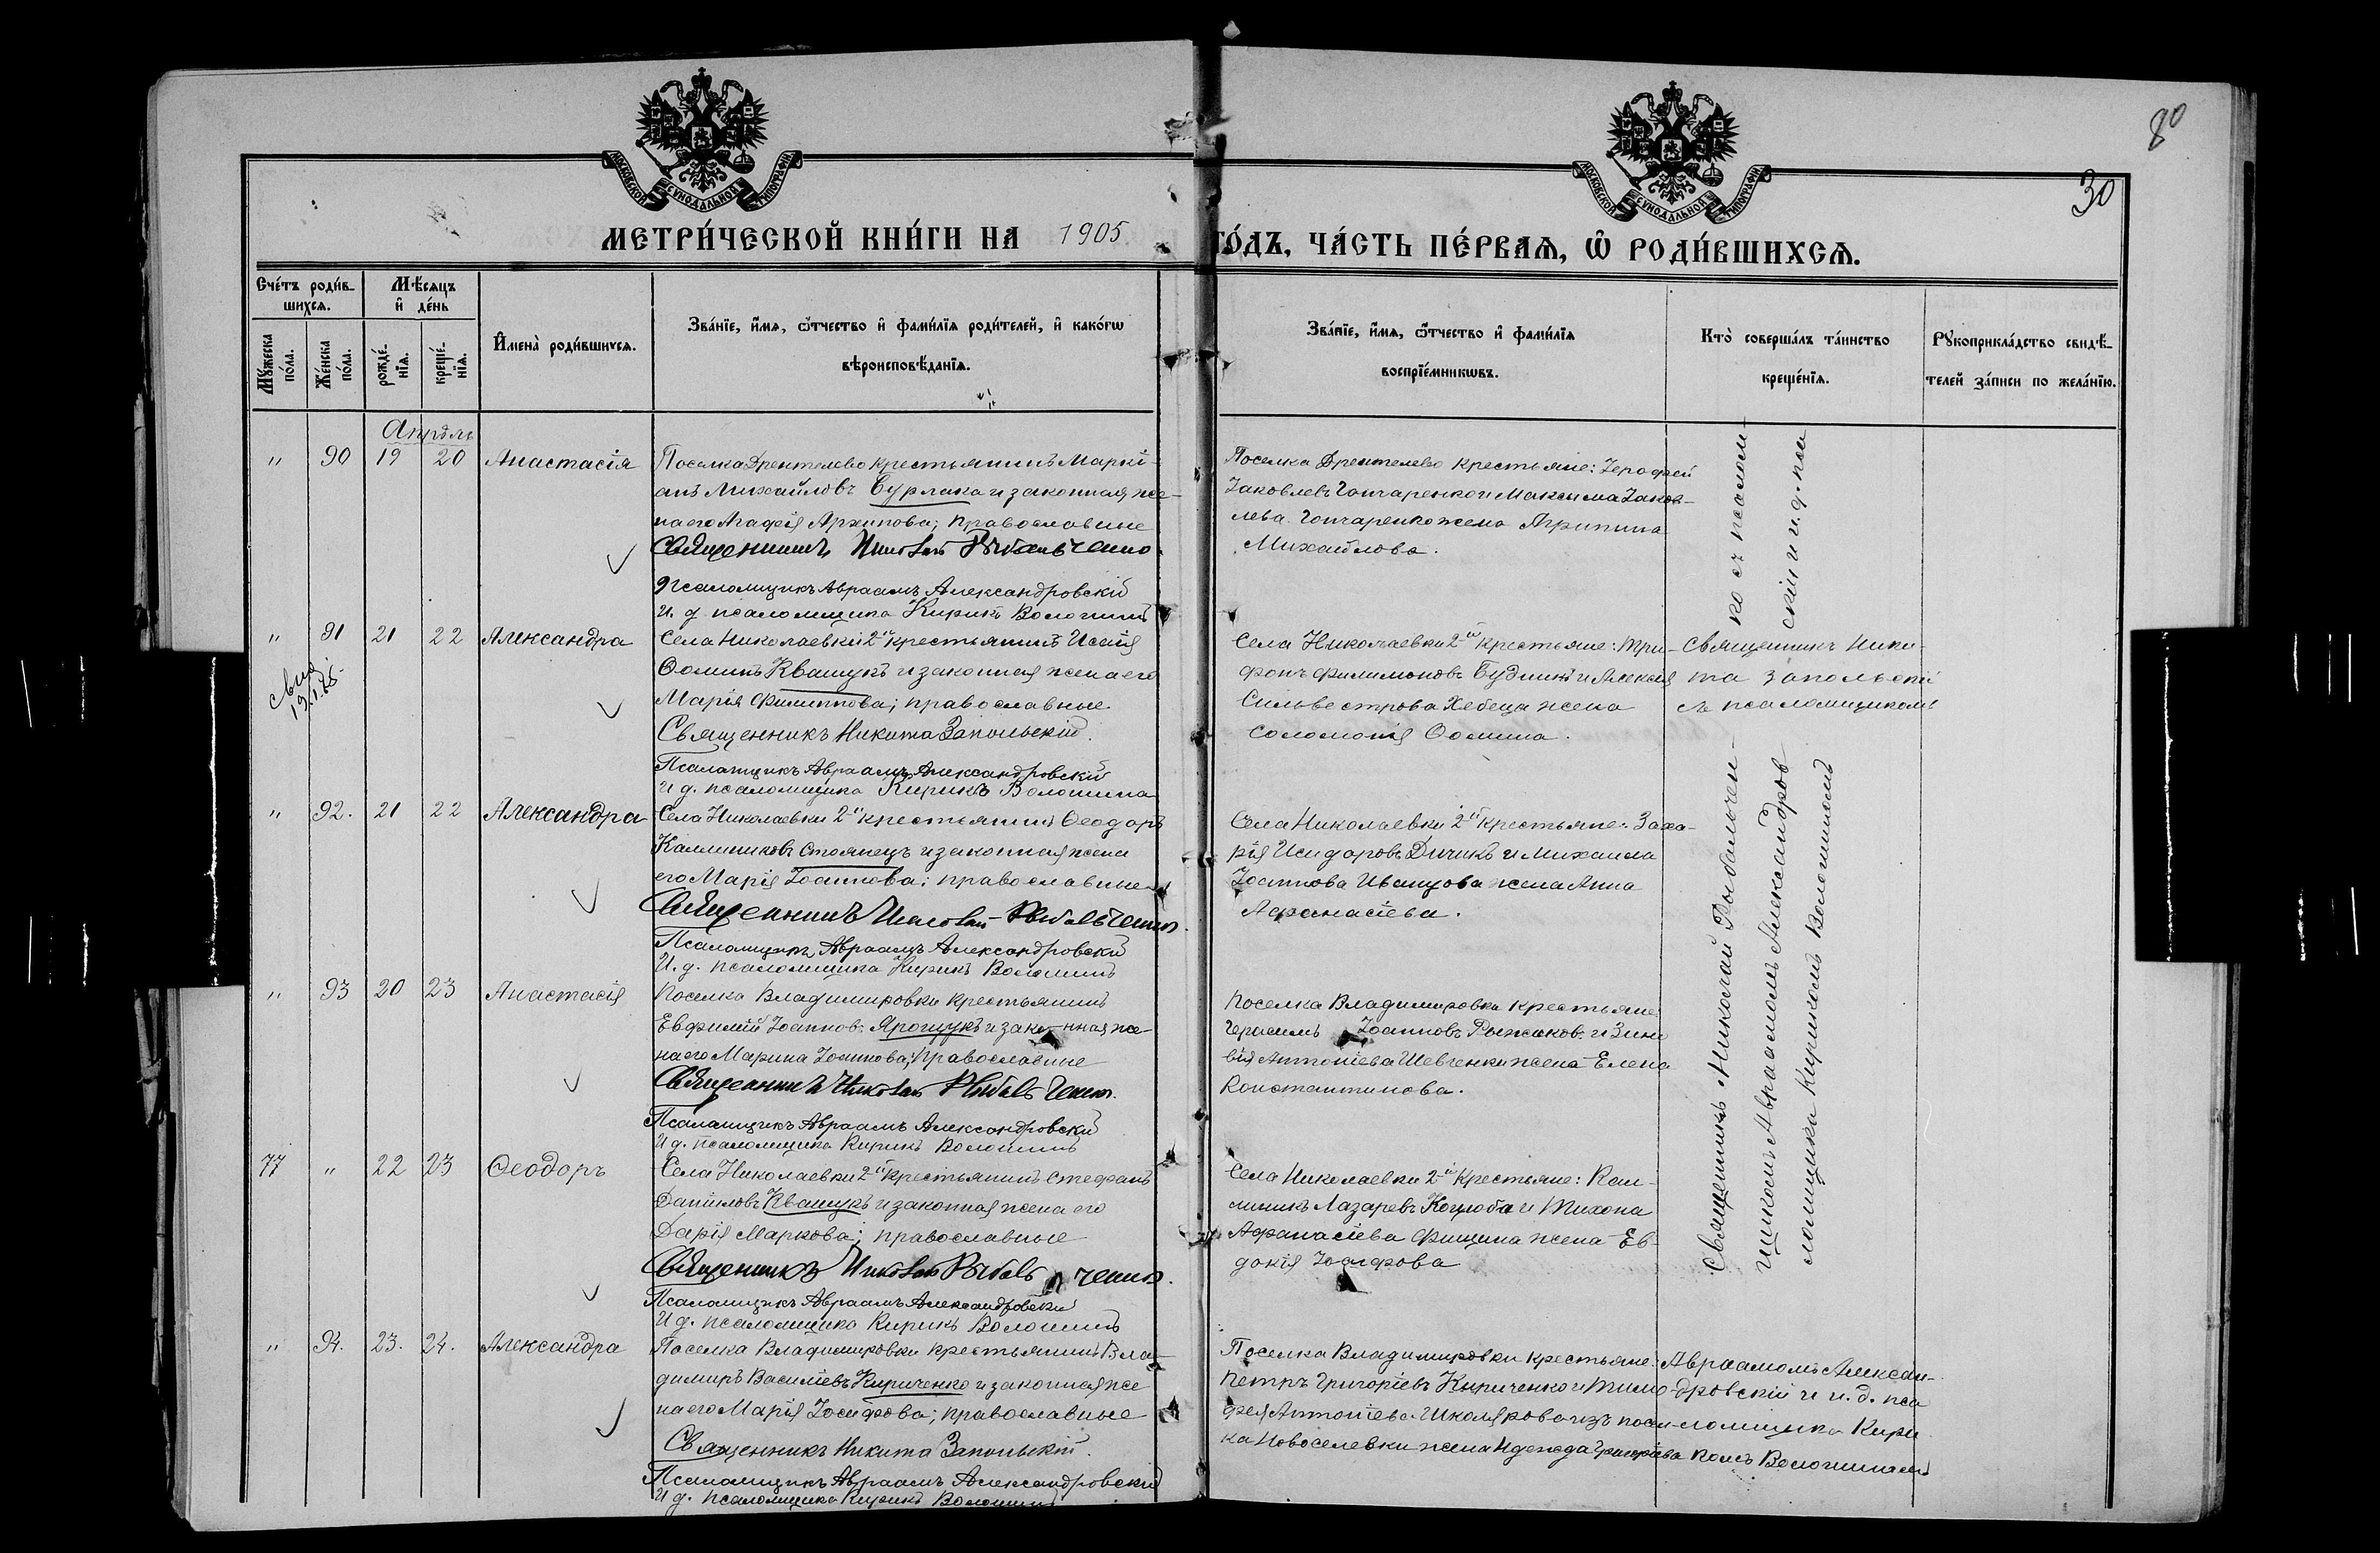 80
30
МОСКОВСКОЙ СУНОДАЛЬНОЙ ТИПОГРАФІИ
МОСКОВСКОЙ СУНОДАЛЬНОЙ ТИПОГРАФІИ
МЕТРИ́ЧЕСКОЙ КНИ́ГИ НА 1905 ГО́ДЪ, ЧА́СТЬ ПЕ́РВАѦ, Ѡ РОДИ́ВШИХСѦ.
Сче́тъ роди́в-
шихсѧ.
Мꙋ́жеска по́ла.
Же́нска по́ла.
Мѣ́сѧцъ
и҆ де́нь
рожде́-
нїѧ.
креще́-
нїѧ.
И҆мена̀ роди́вшихсѧ.
Зва́нїе, и҆́мѧ, ѻ҆́тчество и҆ фами́лїѧ роди́телей, и҆ како́гѡ
вѣроисповѣ́данїѧ.
Зва́нїе, и҆́мѧ, ѻ҆́тчество и҆ фами́лїѧ
воспрїе́мникѡвъ.
Кто̀ соверша́лъ та́инство
креще́нїѧ.
Рꙋкоприкла́дство свидѣ́-
телей за́писи по жела́нїю.
Апрѣль
" 90 19 20 Анастасія
Поселка Дрентелево крестьянинъ Маркі-
анъ Михайловъ Бурлака и законная же-
на его Агафія Архипова; православные
Священникъ Николай Рыбальченко.
Псаломщикъ Авраамъ Александровскій
И. д. псаломщика Кирикъ Волошинъ
Поселка Дрентелево крестьяне: Іерофей
Іаковлевъ Гончаренко и Максима Іаков-
лева Гончаренко жена Агрипина
Михайлова.
" 91 21 22 Александра
свид.
Села Николаевки 2й крестьянинъ Исаія
Ѳоминъ Квашукъ и законная жена его
Марія Филиппова; православные
Священникъ Никита Запольскій.
Псаломщикъ Авраамъ Александровскій
И д. псаломщика Кирикъ Волошинъ
Села Николаевки 2й крестьяне: Три-
фонъ Филимоновъ Будникъ и Алексія
Сильвестрова Хебеца жена
Соломонія Ѳомина.
Священникъ Ники-
та Запольскій
съ псаломщикомъ
" 92. 21 22 Александра
Села Николаевки 2й крестьянинъ Ѳеодоръ
Каллиниковъ Стоянецъ и законная жена
его Марія Іоаннова; православные
Священникъ Николай Рыбальченко.
Псаломщикъ Авраамъ Александровскій
И. д. псаломщика Кирикъ Волошинъ
Села Николаевки 2й крестьяне: Заха-
рія Исидоровъ Дичикъ и Михаила
Іоаннова Иванцова жена Анна
Афанасіева.
" 93 20 23 Анастасія
Поселка Владимировки крестьянинъ
Евфимій Іоанновъ Ярощукъ и законная же-
на его Марина Іоаннова; православные
Священникъ Николай Рыбальченко.
Псаломщикъ Авраамъ Александровскій
И д. псаломщика Кирикъ Волошинъ
Поселка Владимировки крестьяне:
Герасимъ Іоанновъ Рыжаковъ и Зино-
вія Антоніева Шевченки жена Елена
Константинова.
77 " 22 23 Ѳеодоръ
Села Николаевки 2й крестьянинъ Стефанъ
Даниловъ Квашукъ и законная жена его
Дарія Маркова; православные
Священникъ Николай Рыбальченко.
Псаломщикъ Авраамъ Александровскій
И д. псаломщика Кирикъ Волошинъ
Села Николаевки 2й крестьяне: Кал-
линикъ Лазаревъ Коцюба и Тихона
Афанасіева Фищина жена Ев-
докія Іосифова
" 94. 23. 24. Александра
Поселка Владимировки крестьянинъ Вла-
димиръ Василіевъ Кириченко и законная же
на его Марія Іосифова; православные
Священникъ Никита Запольскій.
Псаломщикъ Авраамъ Александровскій
И д. псаломщика Кирикъ Волошинъ
Поселка Владимировки крестьяне:
Петръ Григоріевъ Кириченко и Тимо-
фея Антоніева Школярова изъ посел-
ка Новоселевки жена Надежда Григоріева
Авраамомъ Алексан-
дровскій и и. д. пса
ломщика Кири
комъ Волошинымъ
Священникъ Николай Рыбальчен-
ко съ псалом-
щикомъ Авраамомъ Александров
скій и и. д. пса
ломщика Кирикомъ Волошиномъ